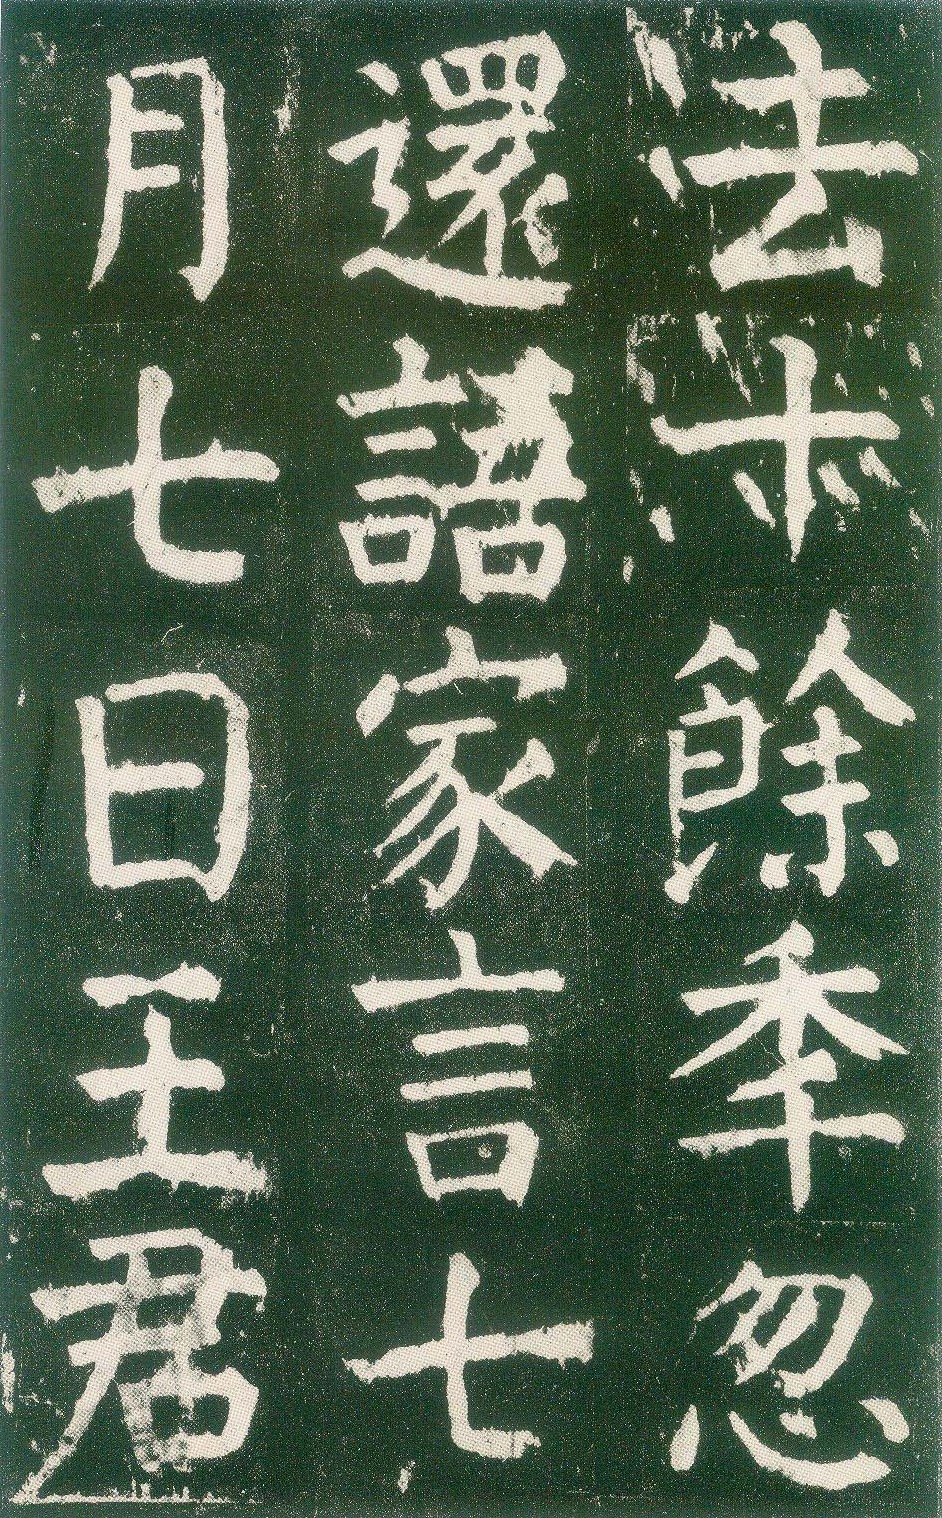 去十餘秊忽
還語家言七
月七日王君